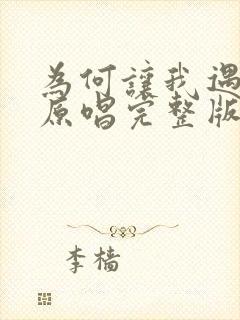 為何讓我遇
原唱完整版
李檣